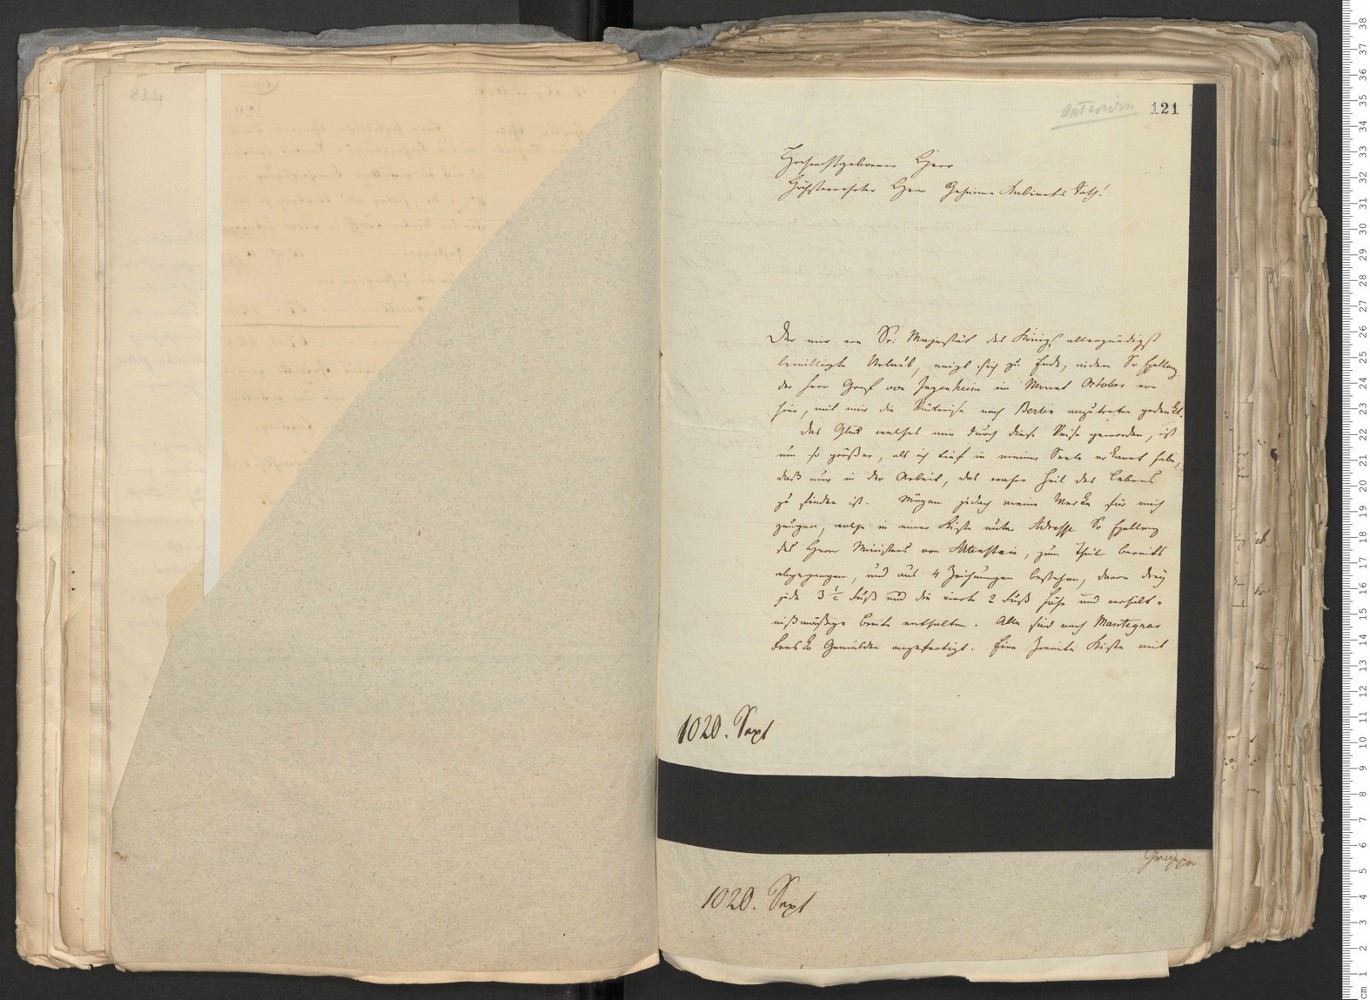 121
Hochwohlgeborner Herr
Höchstverehrter Herr Geheimer Kabinets Rath!
Der mir von Sr: Majestät des Königs allergnädigst
bewilligte Urlaub, neigt sich zu Ende, indem Sr Exzellenz
der Herr Graf von Ingenheim im Monat October von
hier, mit mir die Rükreise nach Berlin anzutreten gedenkt.
Das Glük welches mir durch diese Reise geworden, ist
um so größer, als ich tief in meiner Seele erkannt habe,
daß nur in der Arbeit, das wahre Heil des Lebens
zu finden ist. Mögen jedoch meine Werke für mich
zeugen, welche in einer Kiste unter Adresse Sr Exzellenz
des Herrn Ministers von Altenstein, zum Theil bereits
abgegangen, und aus 4 Zeichnungen bestehen, davon drey
jede 3 ½ Fuß und die vierte 2 Fuß Höhe und verhält-
nißmäßige Breite enthalten. Alle sind nach Mantegnas
Gemälden angefertigt. Eine zweite Kiste mit
1020. Sept
1020. Sept
118